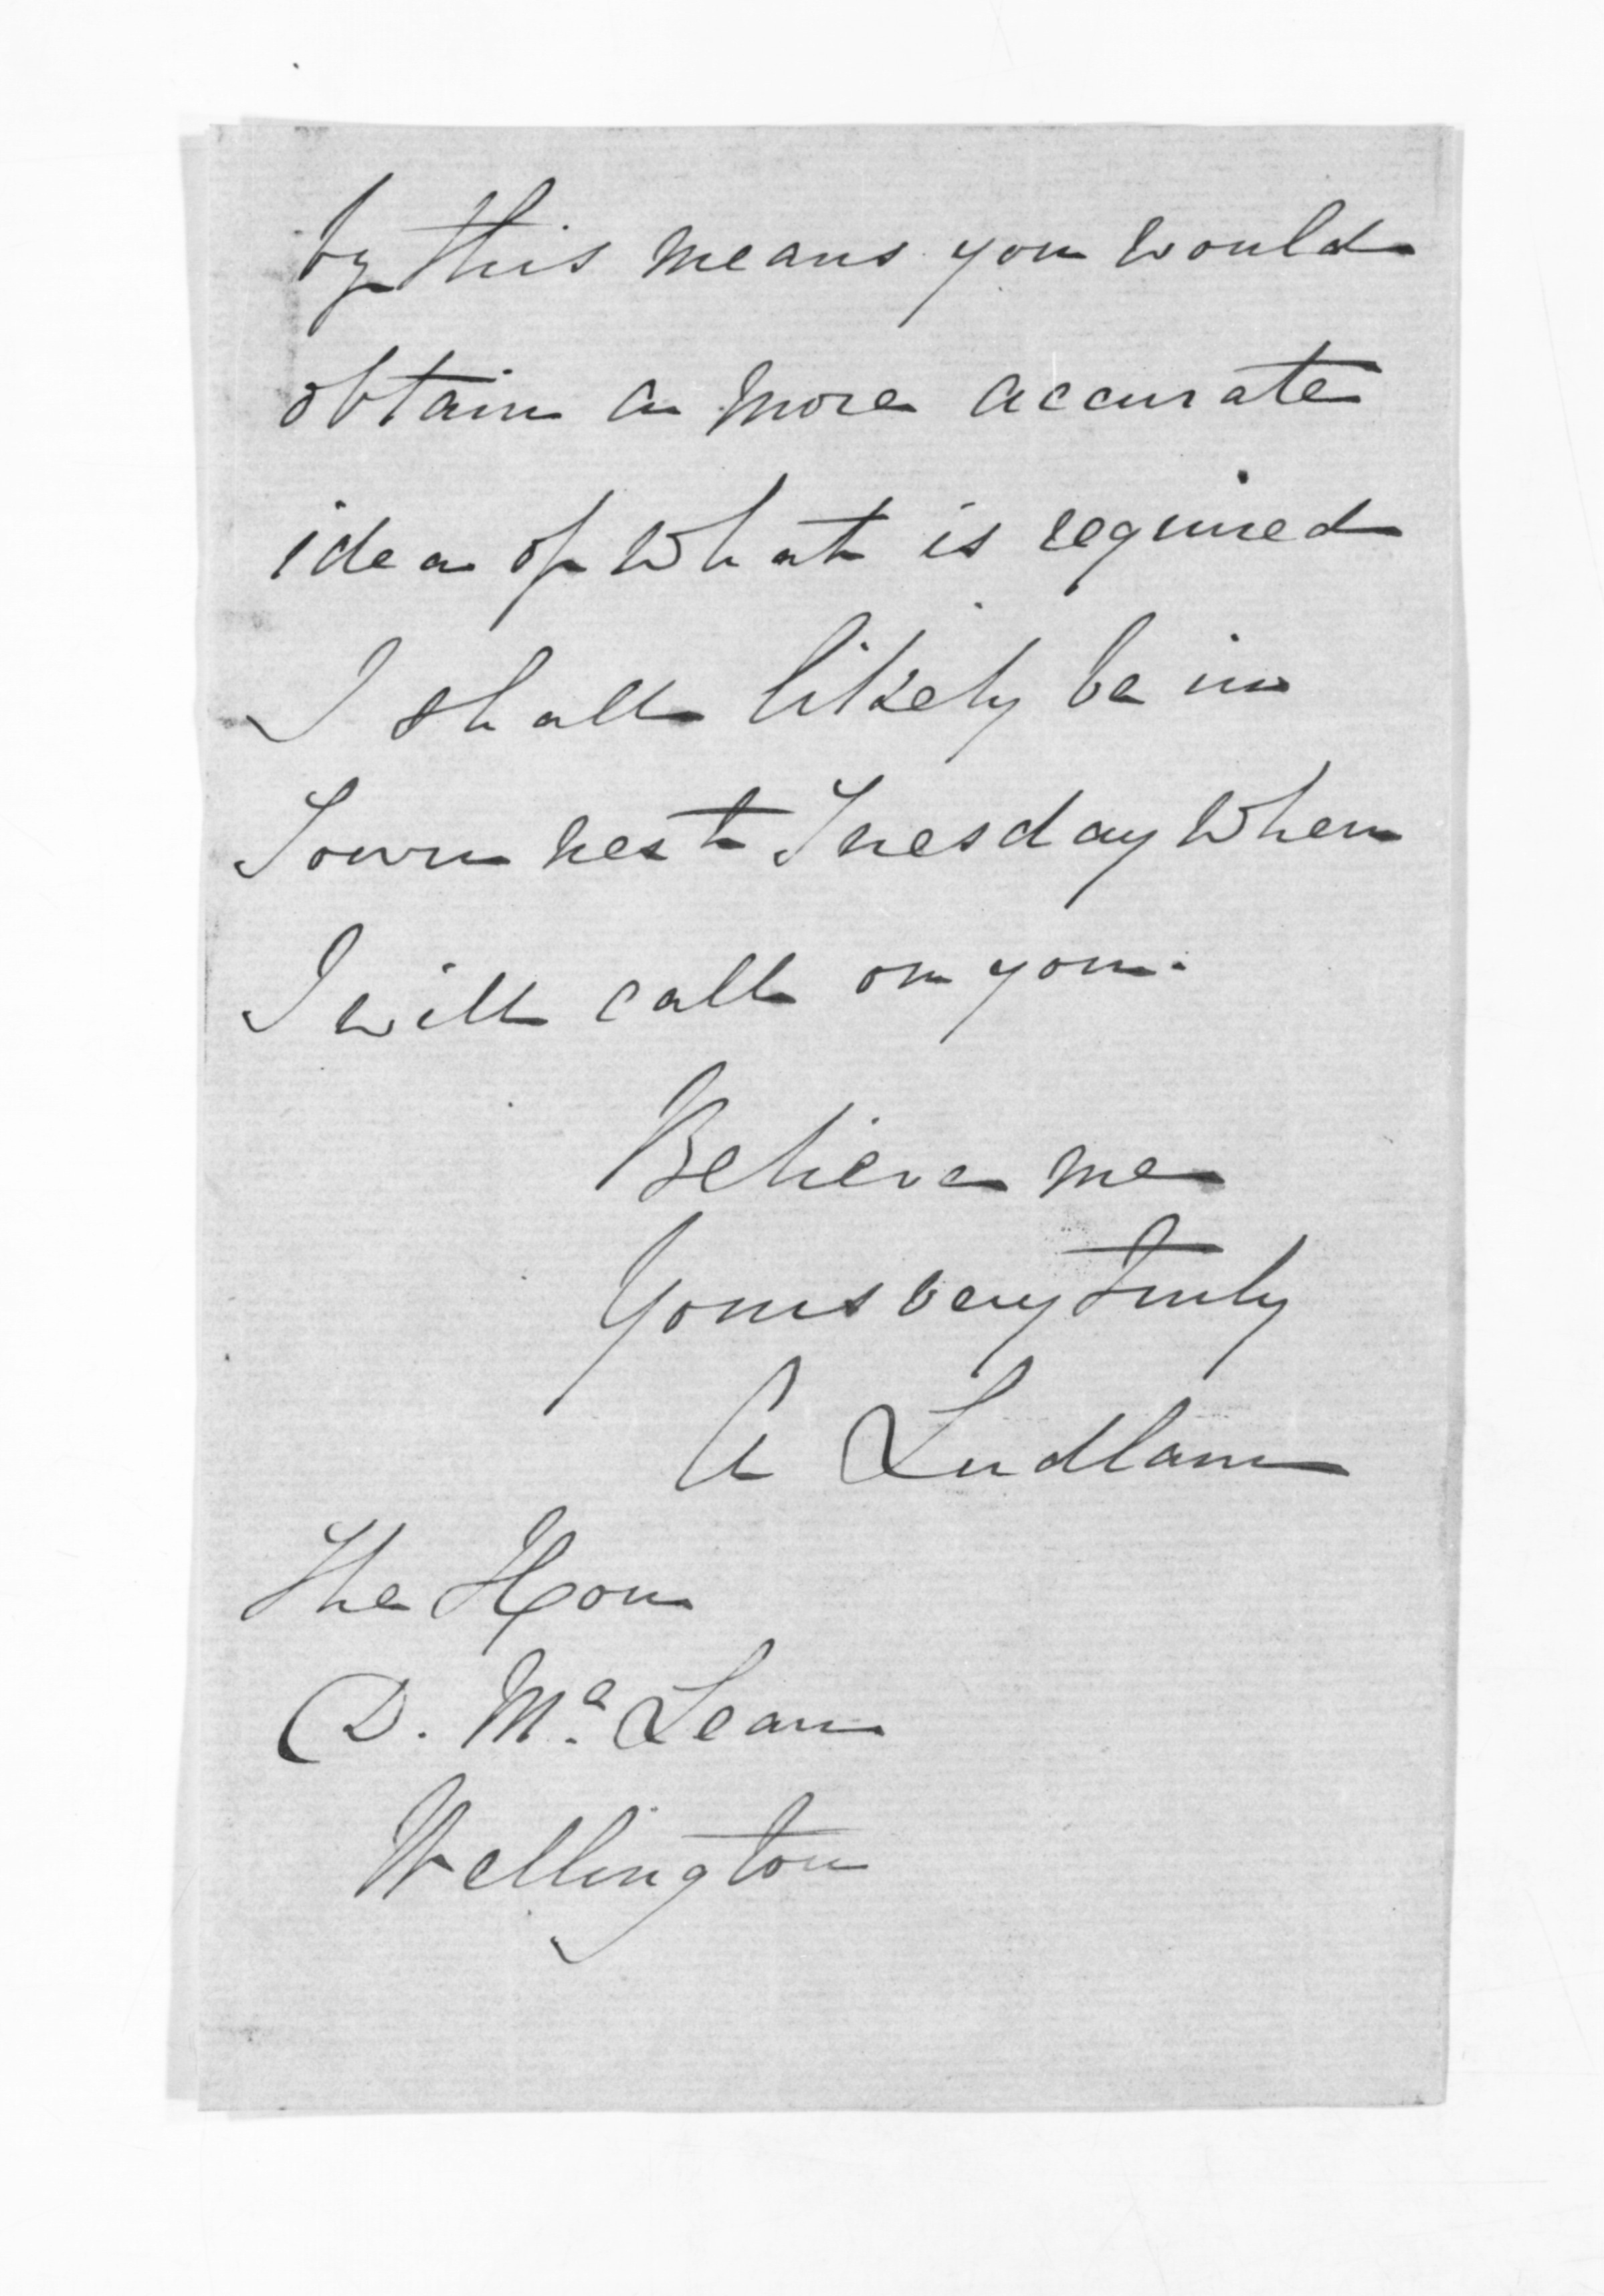 by this means you would
obtain a more accurate
idea of what is required
I shall likely be in
Town next Tuesday when
I will call on you.
Believe me
Yours very truly
A Ludlam
The Hon
D. Mc Lean
Wellington